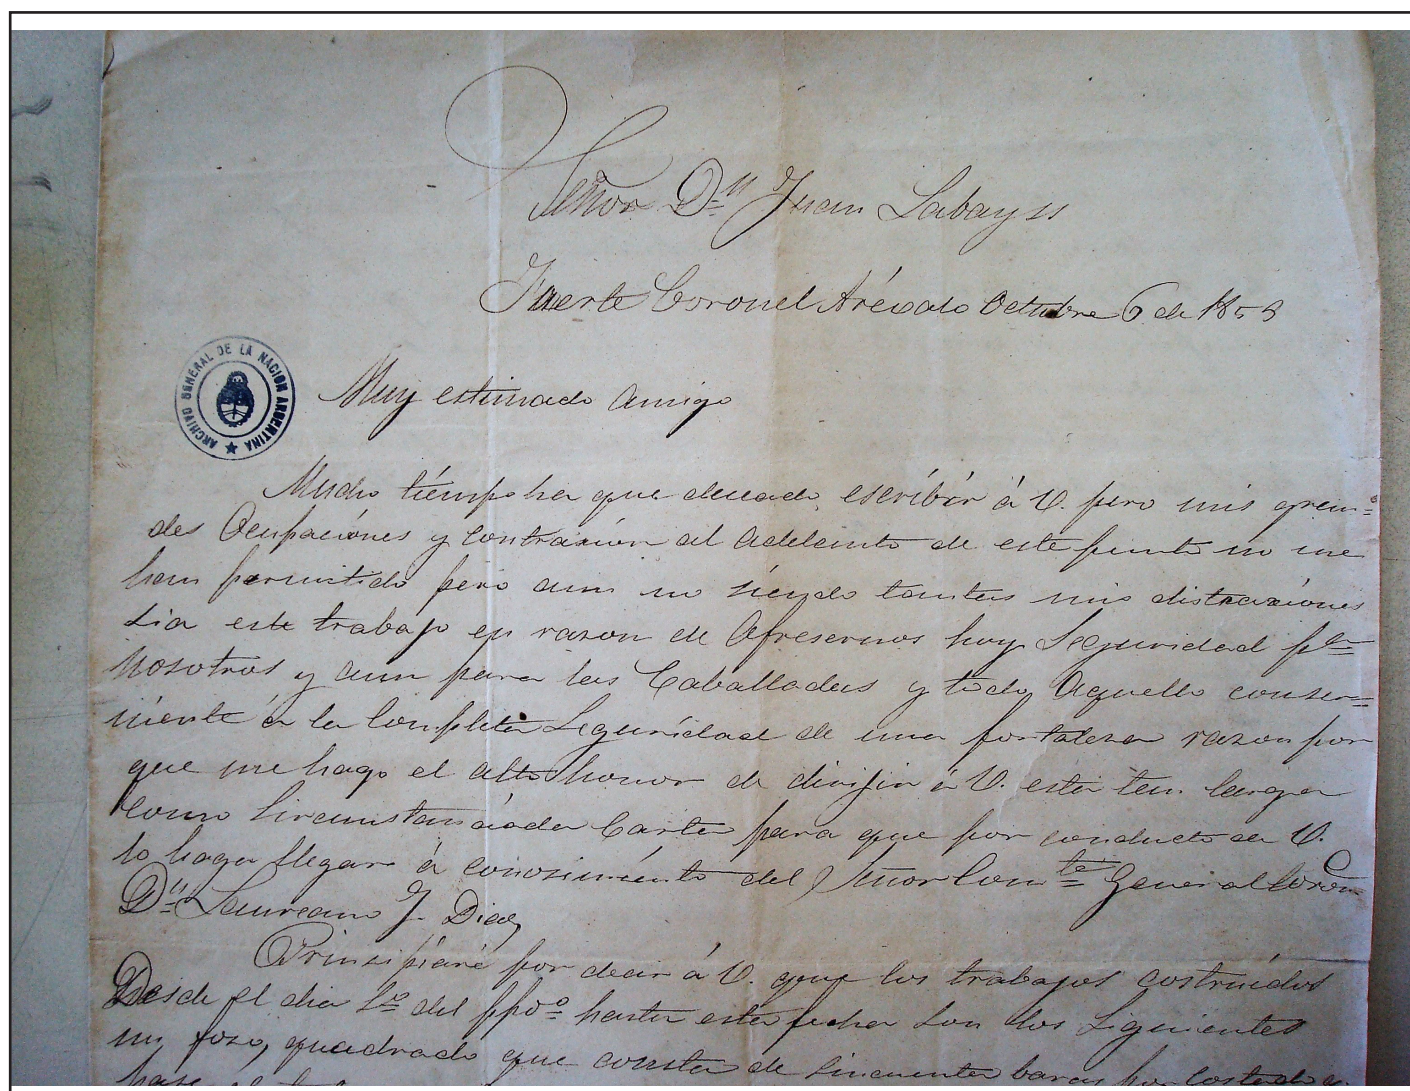 Señor Dn Juan Labayss
Fuerte Coronel Arévalo Octubre 6 de 185
ARCHIVO GENERAL DE LA NACION ARGENTINA
Muy estimado Amigo
Mucho tiémpo ha que deceado escríbír á V. pero mis gran=
des Ocupaciónes y contraxión al Adelanto de este punto no me
han permitido pero aun no siendo tantas mis distraxiónes
este trabajo en razon de Ofresernos hoy Seguridad pa
Nosotros y aun para las Caballadas y todo Aquello conser=
niente á la Completa Seguridad de una fortalesa razon por
que me hago el alto honor de dirijir á V. esta tan larga
Como Sircunstanciada Carta para que por conducto de V.
lo haga llegar á conosimiénto del Señor Comte General Coron
Dn Laureano J. Diaz
Prinsipiaré por decir á V. que los trabajos costruídos
Desde el dia 1o del ppdo hasta esta fecha son los Siguientes
un foso, quadrado que consta de Sincuenta baras por Costado